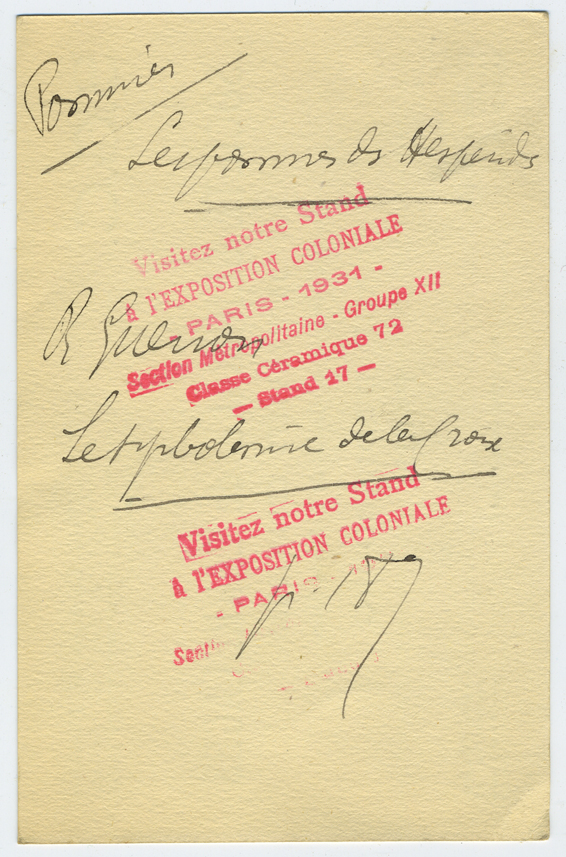 Pommier
Les pommes des Hespérides
Visitez notre Stand
à l'EXPOSITION COLONIALE
- PARIS - 1931 -
R Guenon
Section Métropolitaine - Groupe XII
Classe Céramique 72
— Stand 17 —
Le symbolisme de la Croix
Visitez notre Stand
à l'EXPOSITION COLONIALE
- PARIS -
p. 187